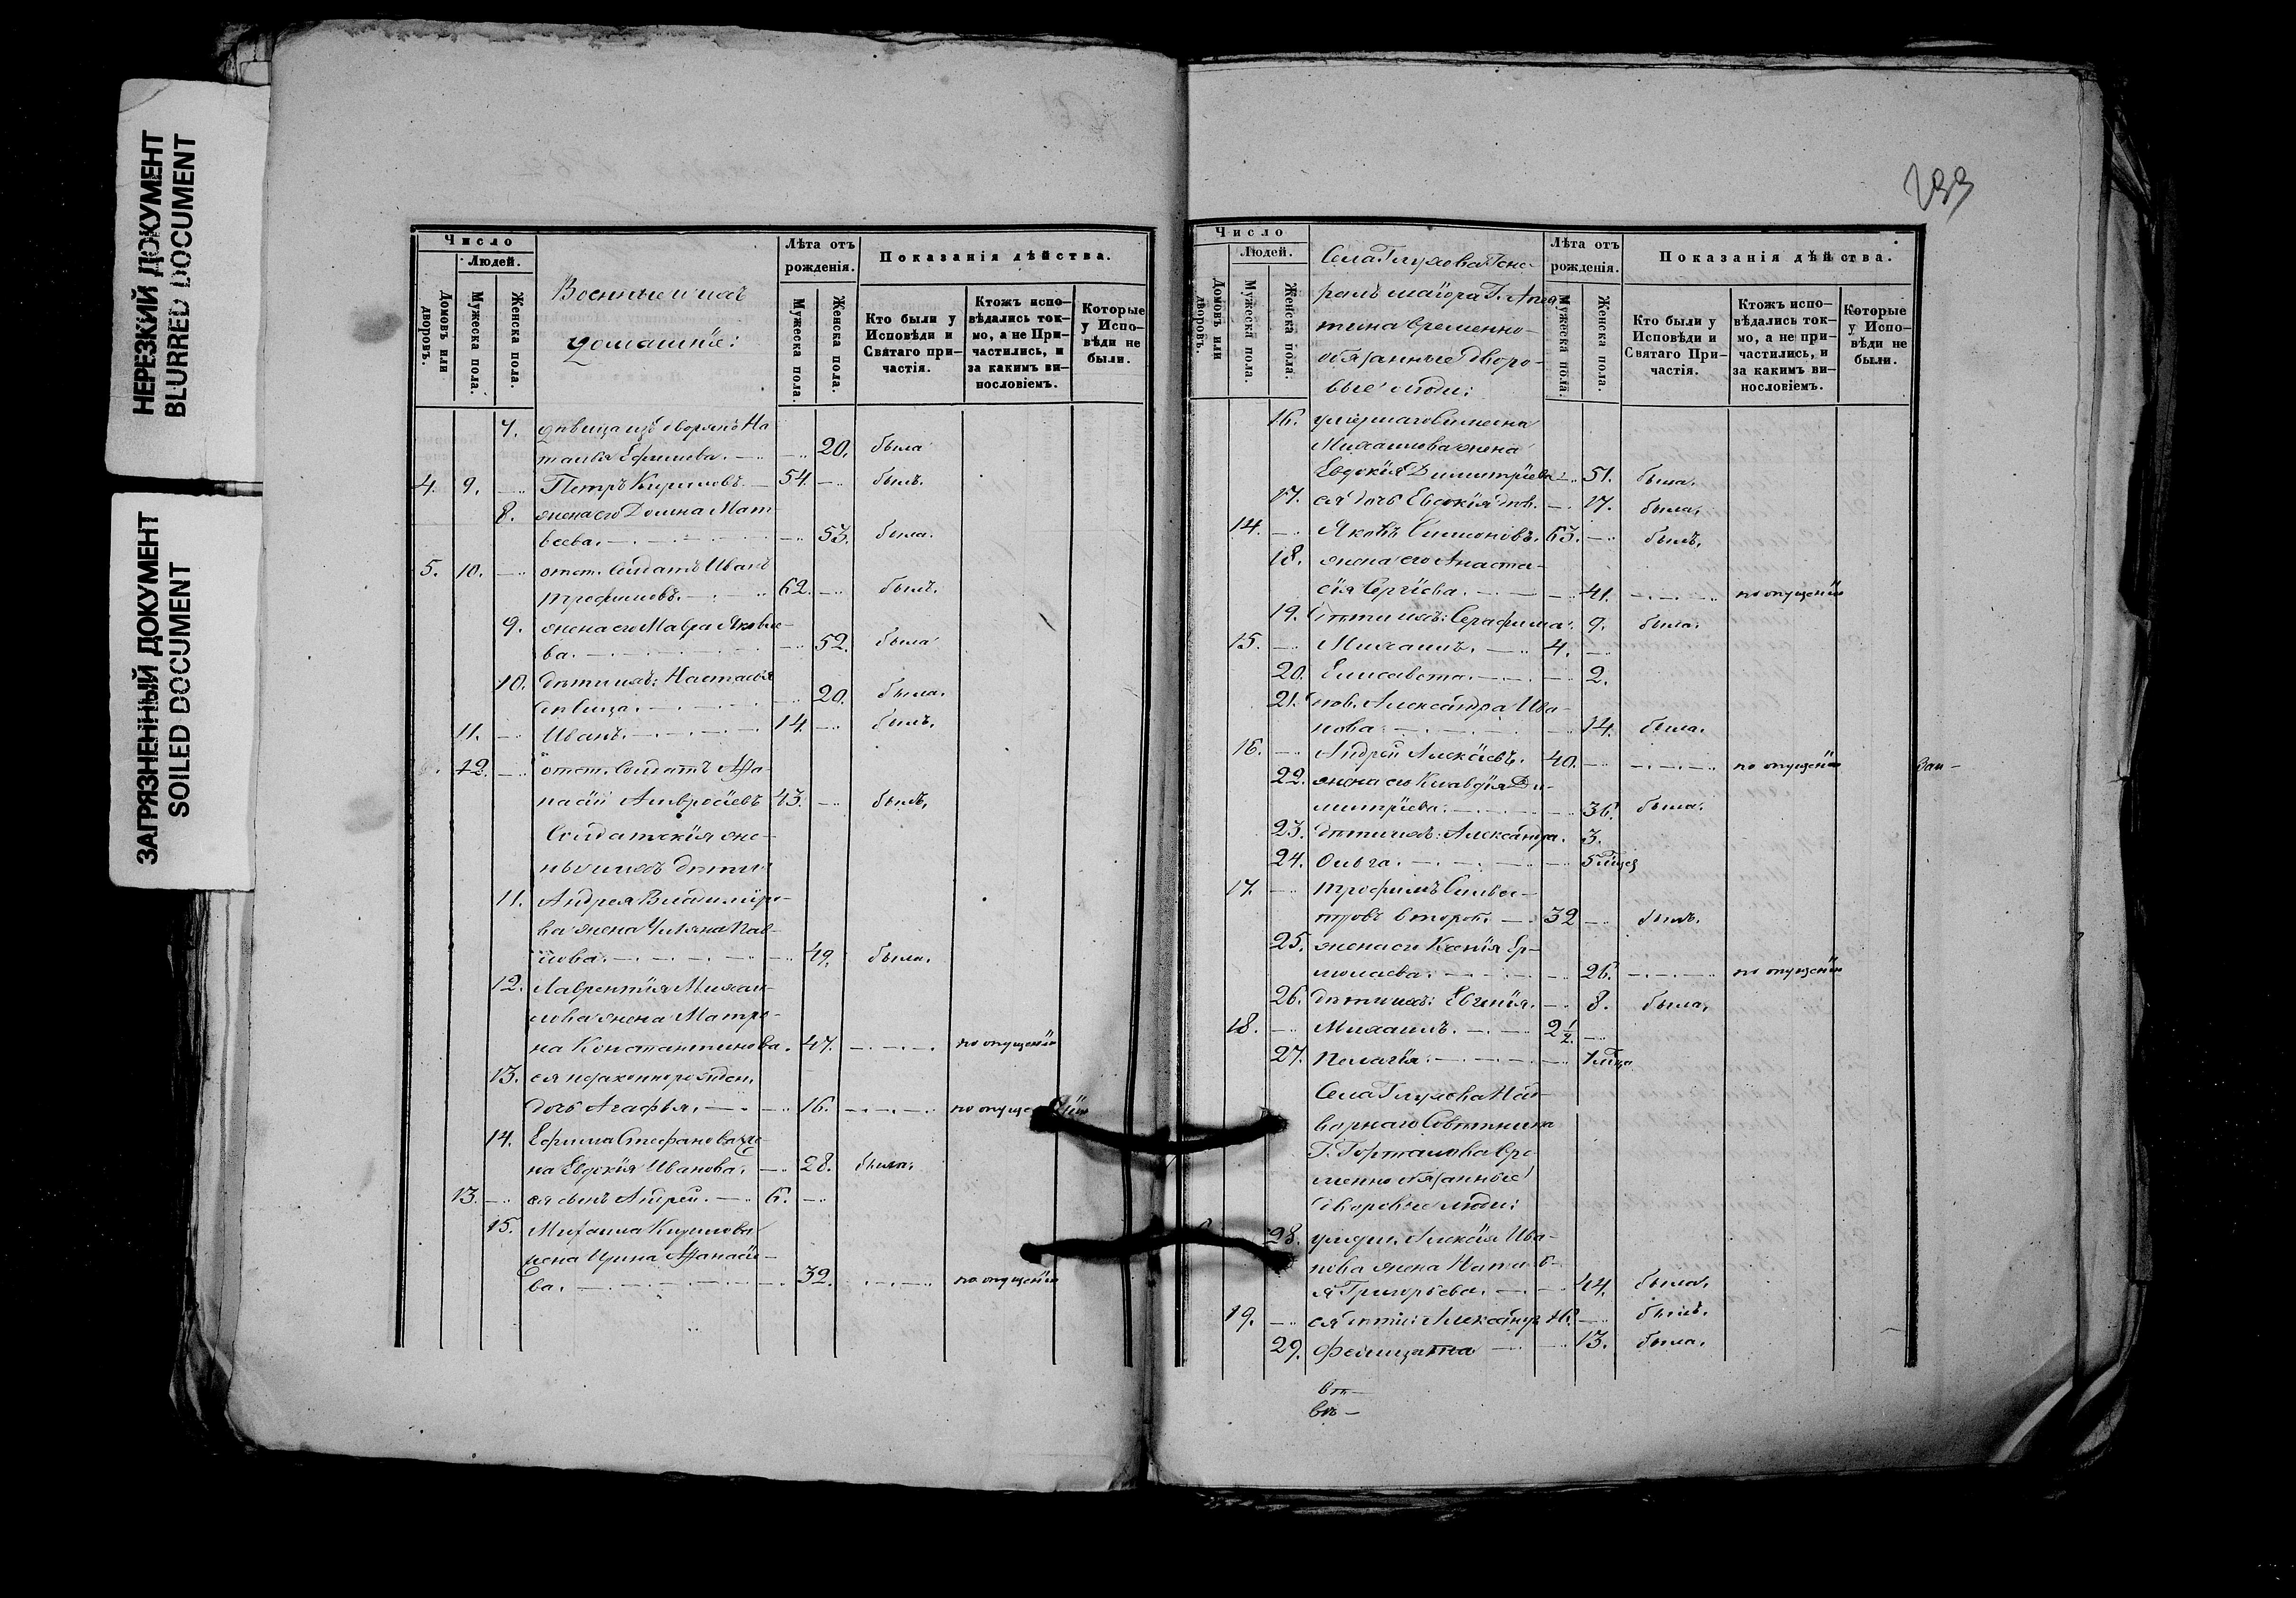 НЕРЕЗКИЙ ДОКУМЕНТ
BLURRED DOCUMENT
ЗАГРЯЗНЕННЫЙ ДОКУМЕНТ
SOILED DOCUMENT
Число
Людей.
Домовъ или дворовъ.
Мужеска пола.
Женска пола.
Военные и ихъ
домашніе:
Лѣта отъ рожденія.
Мужеска пола.
Женска пола.
Показанія дѣйства.
Кто были у Исповѣди и Святаго причастія.
Ктожъ исповѣдались токмо, а не Причастились, и за какимъ винословіемъ.
Которые у Исповѣди не были.
7. дѣвица изъ дворянъ На
талья Ефимова. 20. была
4. 9. Петръ Кириловъ. 54. былъ.
8. жена его Домна Мат
веева. 53. была.
5. 10. отст. Солдатъ Иванъ
Трофимовъ. 62. былъ.
9. жена его Мавра Яковле-
ва. 52. была
10. дѣти ихъ: Настасья
дѣвица. 20. была.
11. Иванъ. 14. былъ.
12. отст. Солдатъ Афа-
насій Амвросіевъ 43. былъ.
Солдатскія же-
ны и ихъ дѣти
11. Андрея Владиміро-
ва жена Ульяна Пав-
лова. 49. была.
12. Лаврентія Михаи-
лова жена Матро-
на Константинова. 47. по опущенію
13. ея незаконнорожден.
дочь Агафья. 16. по опущенію
14. Ефима Стефанова же
на Евдокія Иванова. 28. была.
13. ея сынъ Андрей. 6.
15. Михаила Кирилова
жена Ирина Афанасіе-
ва. 32. по опущенію
133
Число
Людей.
Домовъ или дворовъ.
Мужеска пола.
Женска пола.
Села Глухова Гене-
ралъ маіора Г.
тина временно-
обязанные дворо-
вые люди:
Лѣта отъ рожденія.
Мужеска пола.
Женска пола.
Показанія дѣйства.
Кто были у Исповѣди и Святаго Причастія.
Ктожъ исповѣдались токмо, а не причастились, и за какимъ винословіемъ.
Которые у Исповѣди не были.
16. умершаго Симеона
Михаилова жена
Евдокія Димитріева 51. была.
17. ея дочь Евдокія дѣв. 17. была.
14. Яковъ Симоновъ. 63. былъ.
18. жена его Анаста-
сія Сергіева. 41. по опущенію
19. дѣти ихъ: Серафима. 9. была.
15. Михаилъ. 4.
20. Елисавета. 2.
21. дѣв. Александра Ива-
нова. 14. была.
16. Андрей Алексіевъ. 40. по опущенію
22. жена его Клавдія Ди-
митріева. 36. была.
23. дѣти ихъ: Александра. 3.
24. Ольга. 5
17. Трофимъ Сильве-
стровъ второй. 32 былъ.
25. жена его Ксенія Ер-
молаева. 26. по опущенію
26. дѣти ихъ: Евгенія. 8. была.
18. Михаилъ. 2½
27. Пелагія. 1
Села Глухова Над-
ворнаго Совѣтника
Г. Горталова вре-
менно обязанные
дворовые люди:
28. умерш. Алексія Ива-
нова жена Наталь-
я Григорьева. 44. была.
19. ея дѣти: Александръ 16. былъ.
29. Фелицата 13. была.